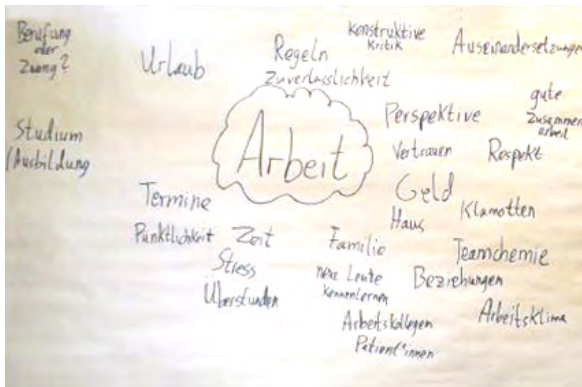 Berufung
oder
Zwang?
Urlaub
Regeln
Zuverlässlichkeit
Konstruktive
Kritik
Auseinandersetzungen
gute
Zusammen
arbeit
Perspektive
Studium
/Ausbildung
Arbeit
Vertrauen
Respekt
Geld
Haus
Klamotten
Termine
Pünktlichkeit
Zeit
Stress
Überstunden
Familie
neue Leute
kennenlernen
Teamchemie
Beziehungen
Arbeitskollegen
Patient*innen
Arbeitsklima